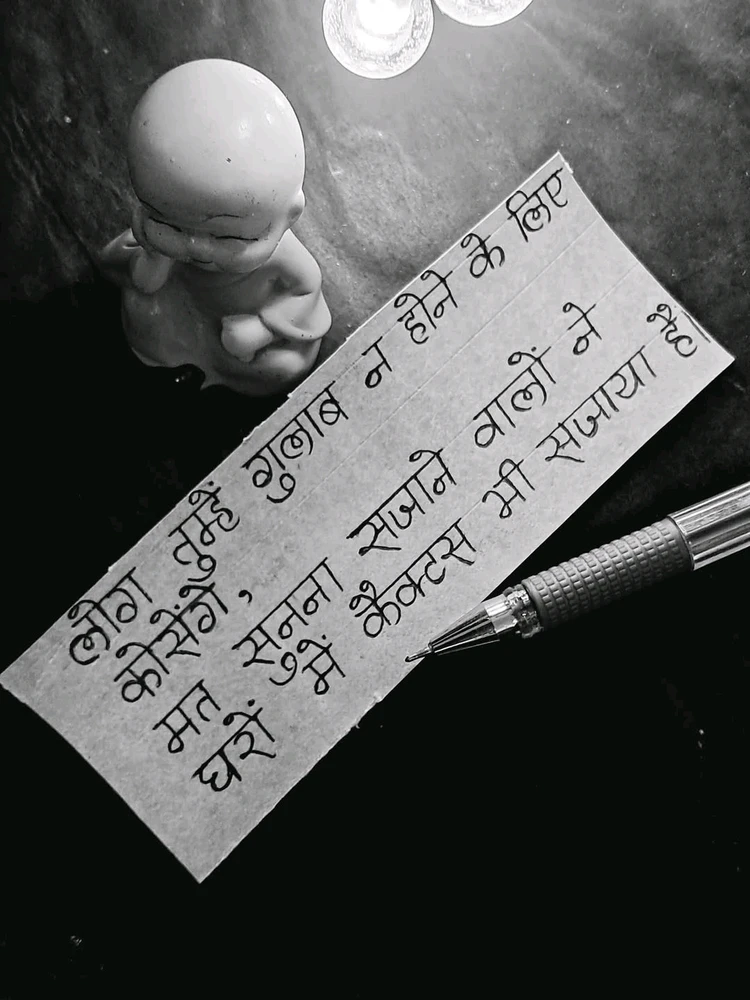 लोग तुम्हें गुलाब न होने के लिए
कोसेंगे,
मत सुनना सजाने वालों ने
घरों में कैक्टस भी सजाया है।